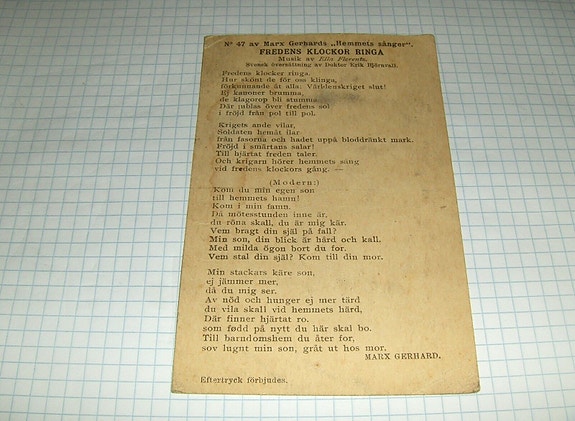 No 47 av Marx Gerhards „Hemmets sånger".
FREDENS KLOCKOR RINGA
Musik av Ella Florentz.
Svensk översättning av Doktor Erik Björnvall.
Fredens klocker ringa.
Hur skönt de för oss klinga,
förkunnande åt alla: Världenskriget slut!
Ej kanoner brumma,
de klagorop bli stumma
Där jublas över fredens sol
i fröjd från pol till pol.
Krigets ande vilar,
Soldaten hemåt ilar
från fasorna och hadet uppå bloddränkt mark.
Fröjd i smärtans salar!
Till hjärtat freden taler.
Och krigarn hörer hemmets sång
vid fredens klockors gång. —
(Modern:)
Kom du min egen son
till hemmets hamn!
Kom i min famn.
Då mötesstunden inne är,
du röna skall, du är mig kär.
Vem bragt din själ på fall?
Min son, din blick är hård och kall,
Med milda ögon bort du for.
Vem stal din själ? Kom till din mor.
Min stackars käre son,
ej jämmer mer,
då du mig ser.
Av nöd och hunger ej mer tärd
du vila skall vid hemmets härd,
Där finner hjärtat ro.
som född på nytt du här skal bo.
Till barndomshem du åter for,
sov lugnt min son, gråt ut hos mor.
MARX GERHARD.
Eftertryck förbjudes.